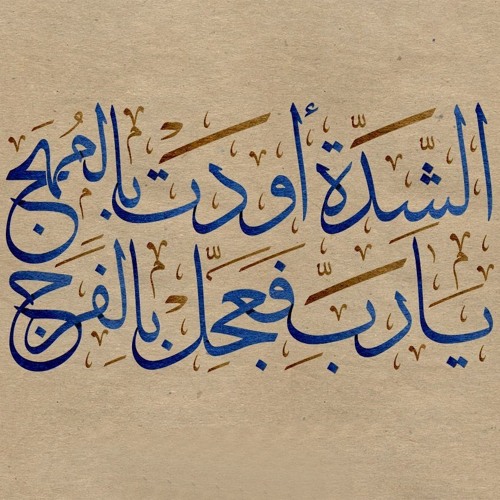 الشدَّة أودت بالمُهج
يا ربِّ فعَجِّل بالفَرَج